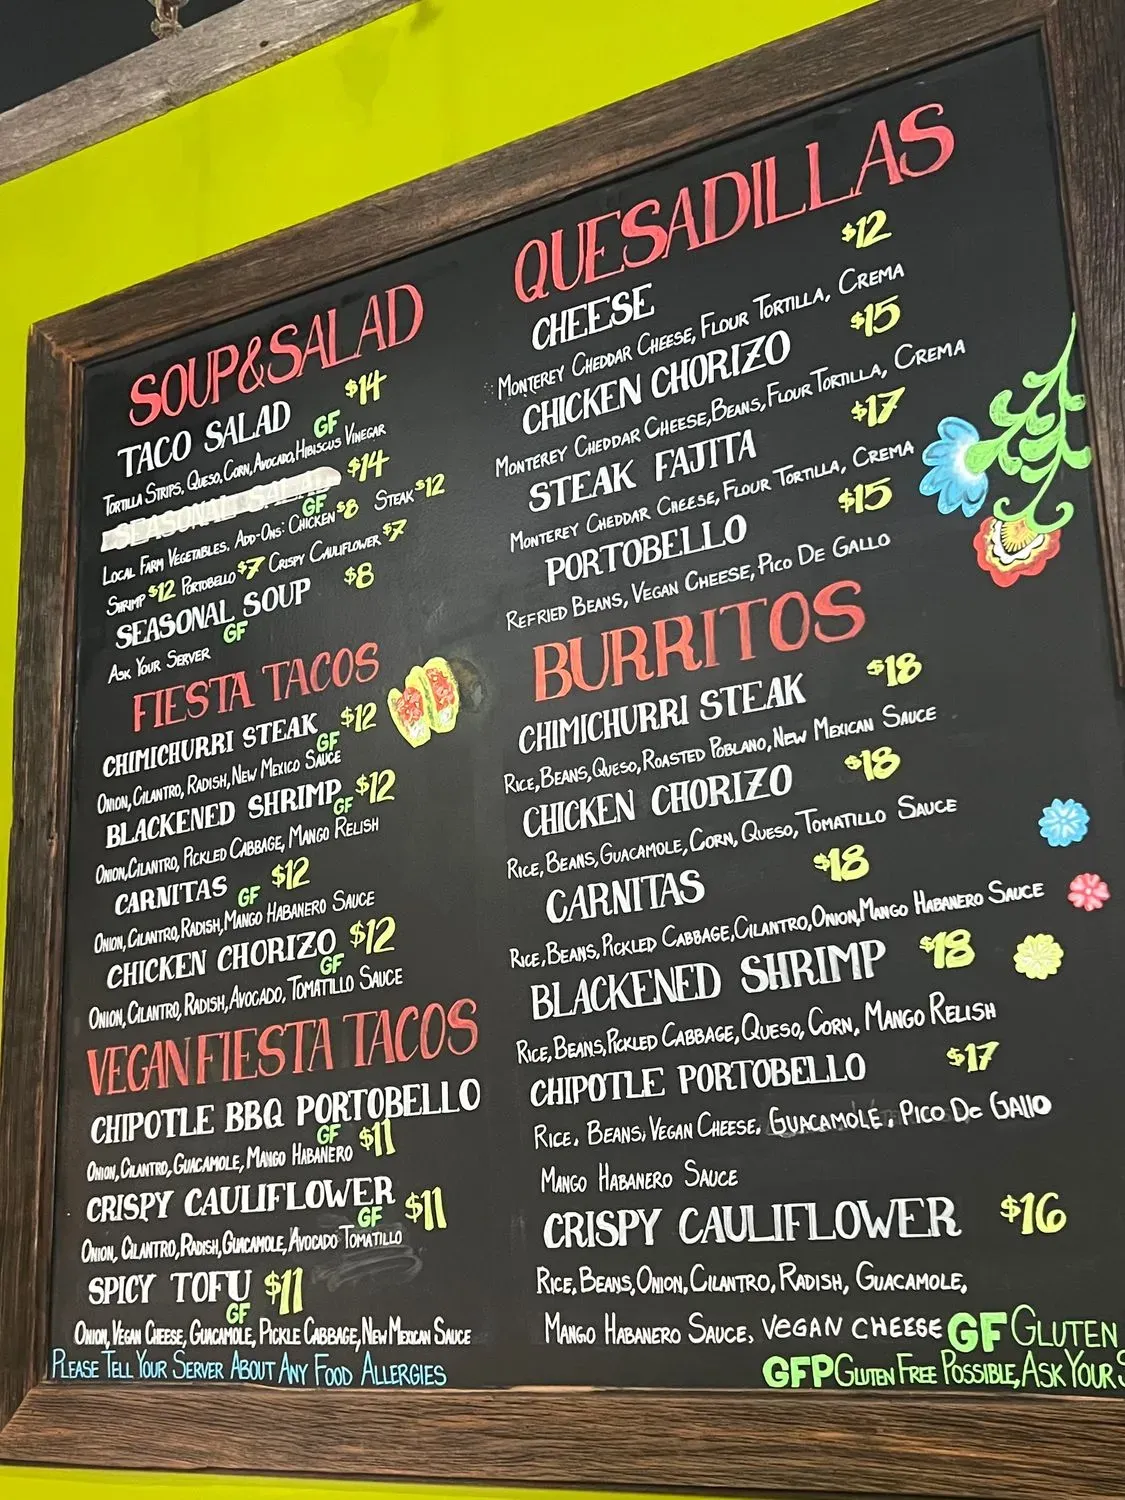 SOUP&SALAD
TACO SALAD $14
GF
TORTILLA STRIPS, QUESO, CORN, AVOCADO, HIBISCUS VINEGAR
SEASONAL SALAD $14
GF
LOCAL FARM VEGETABLES, ADD-ONS: CHICKEN $8 STEAK $12
SHRIMP $12 PORTOBELLO $7 CRISPY CAULIFLOWER $7
SEASONAL SOUP $8
GF
ASK YOUR SERVER
FIESTA TACOS
CHIMICHURRI STEAK $12
GF
ONION, CILANTRO, RADISH, NEW MEXICO SAUCE
BLACKENED SHRIMP $12
GF
ONION, CILANTRO, PICKLED CABBAGE, MANGO RELISH
CARNITAS GF $12
ONION, CILANTRO, RADISH, MANGO HABANERO SAUCE
CHICKEN CHORIZO $12
GF
ONION, CILANTRO, RADISH, AVOCADO, TOMATILLO SAUCE
VEGAN FIESTA TACOS
CHIPOTLE BBQ PORTOBELLO
GF $11
ONION, CILANTRO, GUACAMOLE, MANGO HABANERO
CRISPY CAULIFLOWER $11
GF
ONION, CILANTRO, RADISH, GUACAMOLE, AVOCADO TOMATILLO
SPICY TOFU $11
GF
ONION, VEGAN CHEESE, GUACAMOLE, PICKLE CABBAGE, NEW MEXICAN SAUCE
PLEASE TELL YOUR SERVER ABOUT ANY FOOD ALLERGIES
QUESADILLAS
CHEESE $12
MONTEREY CHEDDAR CHEESE, FLOUR TORTILLA, CREMA
CHICKEN CHORIZO $15
MONTEREY CHEDDAR CHEESE, BEANS, FLOUR TORTILLA, CREMA
STEAK FAJITA $17
MONTEREY CHEDDAR CHEESE, FLOUR TORTILLA, CREMA
PORTOBELLO $15
REFRIED BEANS, VEGAN CHEESE, PICO DE GALLO
BURRITOS
CHIMICHURRI STEAK $18
RICE, BEANS, QUESO, ROASTED POBLANO, NEW MEXICAN SAUCE
CHICKEN CHORIZO $18
RICE, BEANS, GUACAMOLE, CORN, QUESO, TOMATILLO SAUCE
CARNITAS $18
RICE, BEANS, PICKLED CABBAGE, CILANTRO, ONION, MANGO HABANERO SAUCE
BLACKENED SHRIMP $18
RICE, BEANS, PICKLED CABBAGE, QUESO, CORN, MANGO RELISH
CHIPOTLE PORTOBELLO $17
RICE, BEANS, VEGAN CHEESE, GUACAMOLE, PICO DE GALLO
MANGO HABANERO SAUCE
CRISPY CAULIFLOWER $16
RICE, BEANS, ONION, CILANTRO, RADISH, GUACAMOLE,
MANGO HABANERO SAUCE, VEGAN CHEESE
GF GLUTEN
GFP GLUTEN FREE POSSIBLE, ASK YOUR S